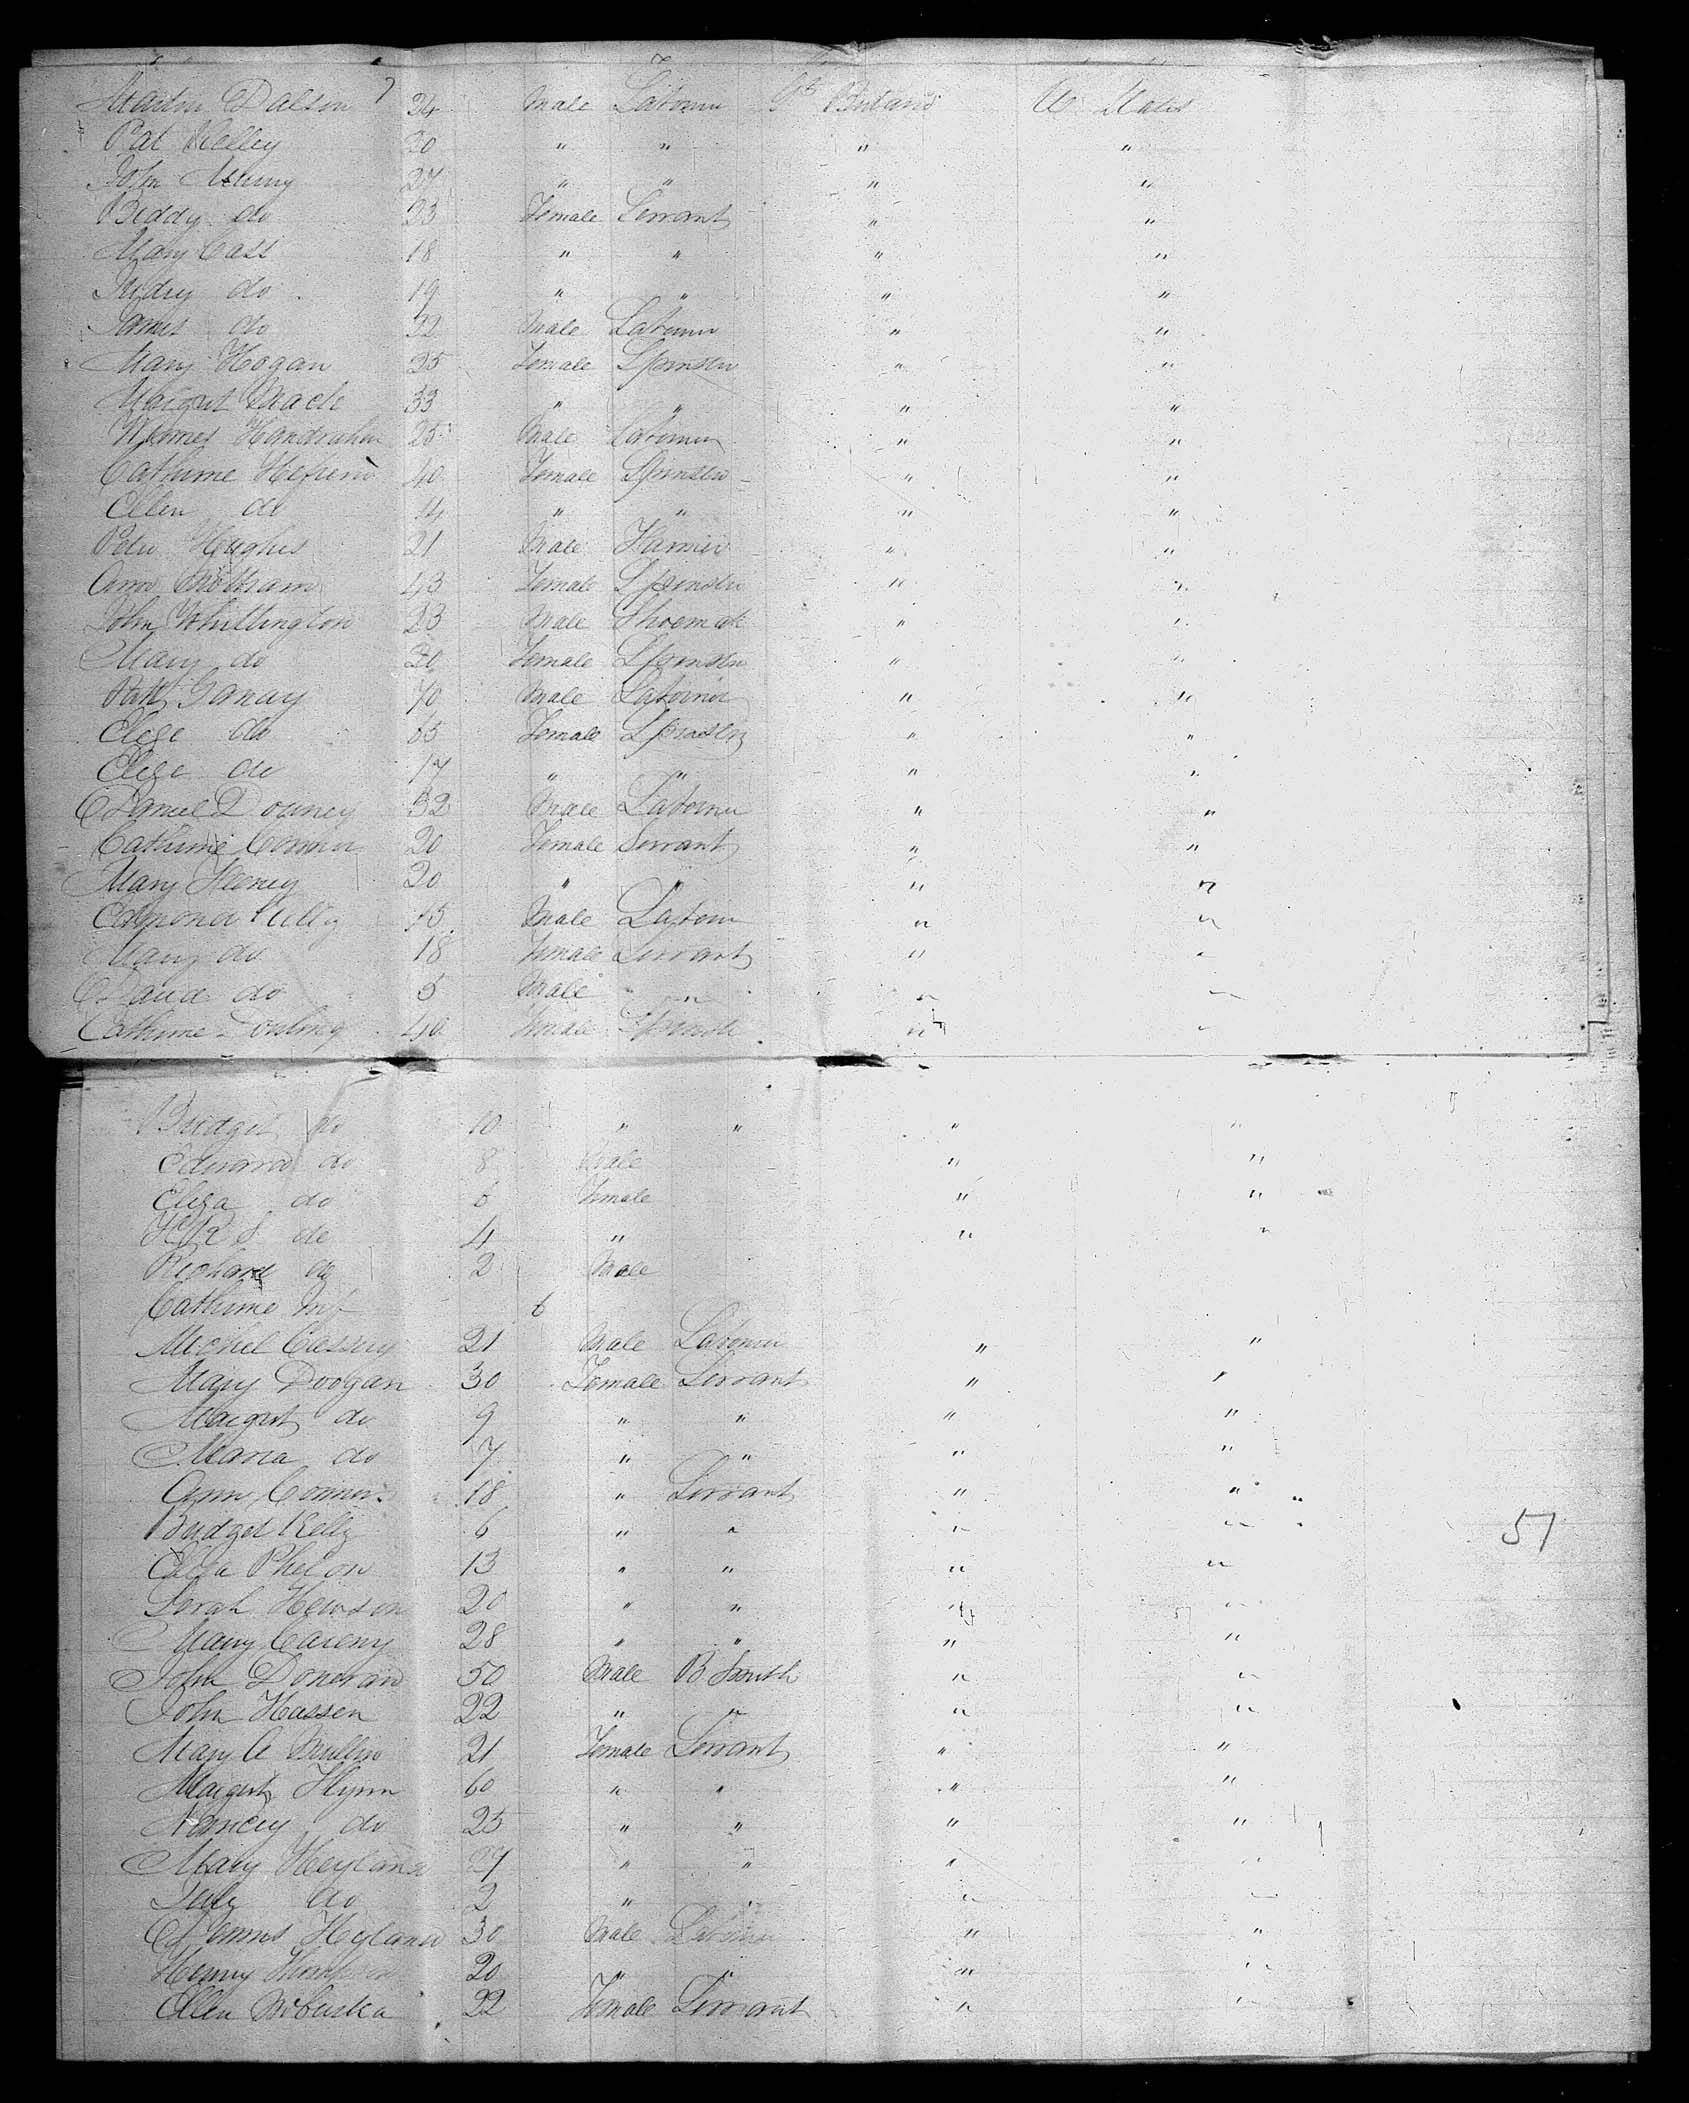 Martin Dalton 24 Male Laborer Gt Britain U States
Pat Kelley 30 " " " "
John Murry 27 " " " "
Biddy do 23 Female Servant " "
Mary Cass 18 " " " "
Judy do 19 " " " "
James do 22 Male Laborer " "
Mary Hogan 25 Female Spinster " "
Margret 33 " " " "
Handrahan 25 Male Laborer " "
Cathrine 40 Female Spinster " "
Ellen do 14 " " " "
Peter Hughes 21 Male Farmer " "
Ann 43 Female Spinster " "
John Whittington 23 Male Shoemak " "
Mary do 20 Female Spinster " "
Patk 70 Male Laborer " "
Eliza do 65 Female Spinster " "
Eliza do 17 " " " "
Daniel Downey 32 Male Laborer " "
Cathrine Connor 20 Female Servant " "
Mary 20 " " " "
Edmond 15 Male Labore " "
Mary do 18 Female Servant " "
David do 5 Male " " "
Cathrine 40 Female " "
Bridget do 10 " " " "
Edward do 8 Male " "
Eliza do 6 Female " "
do 4 " " "
Richard do 2 Male
Cathrine Inf 6
Michel 21 Male Laborer " "
Mary Doogan 30 Female Servant " "
Margret do 9 " " " "
Maria do 7 " " " "
Ann Connor 18 " Servant " "
Bridget Kelly 6 " " " "
Eliza Phelon 13 " " " "
Sarah Hewson 20 " " " "
Mary 28 " " " "
John Donovan 50 Male B Smith " "
John Hassen 22 " " " "
Mary A Mullin 21 Female Servant " "
Margret Flynn 60 " " " "
Nancy do 25 " " " "
Mary Heyland 27 " " " "
July do 2 " " " "
Dennis Hyland 30 Male Laborer " "
Henry Thompson 20 " " " "
Ellen 22 Female Servant " "
57